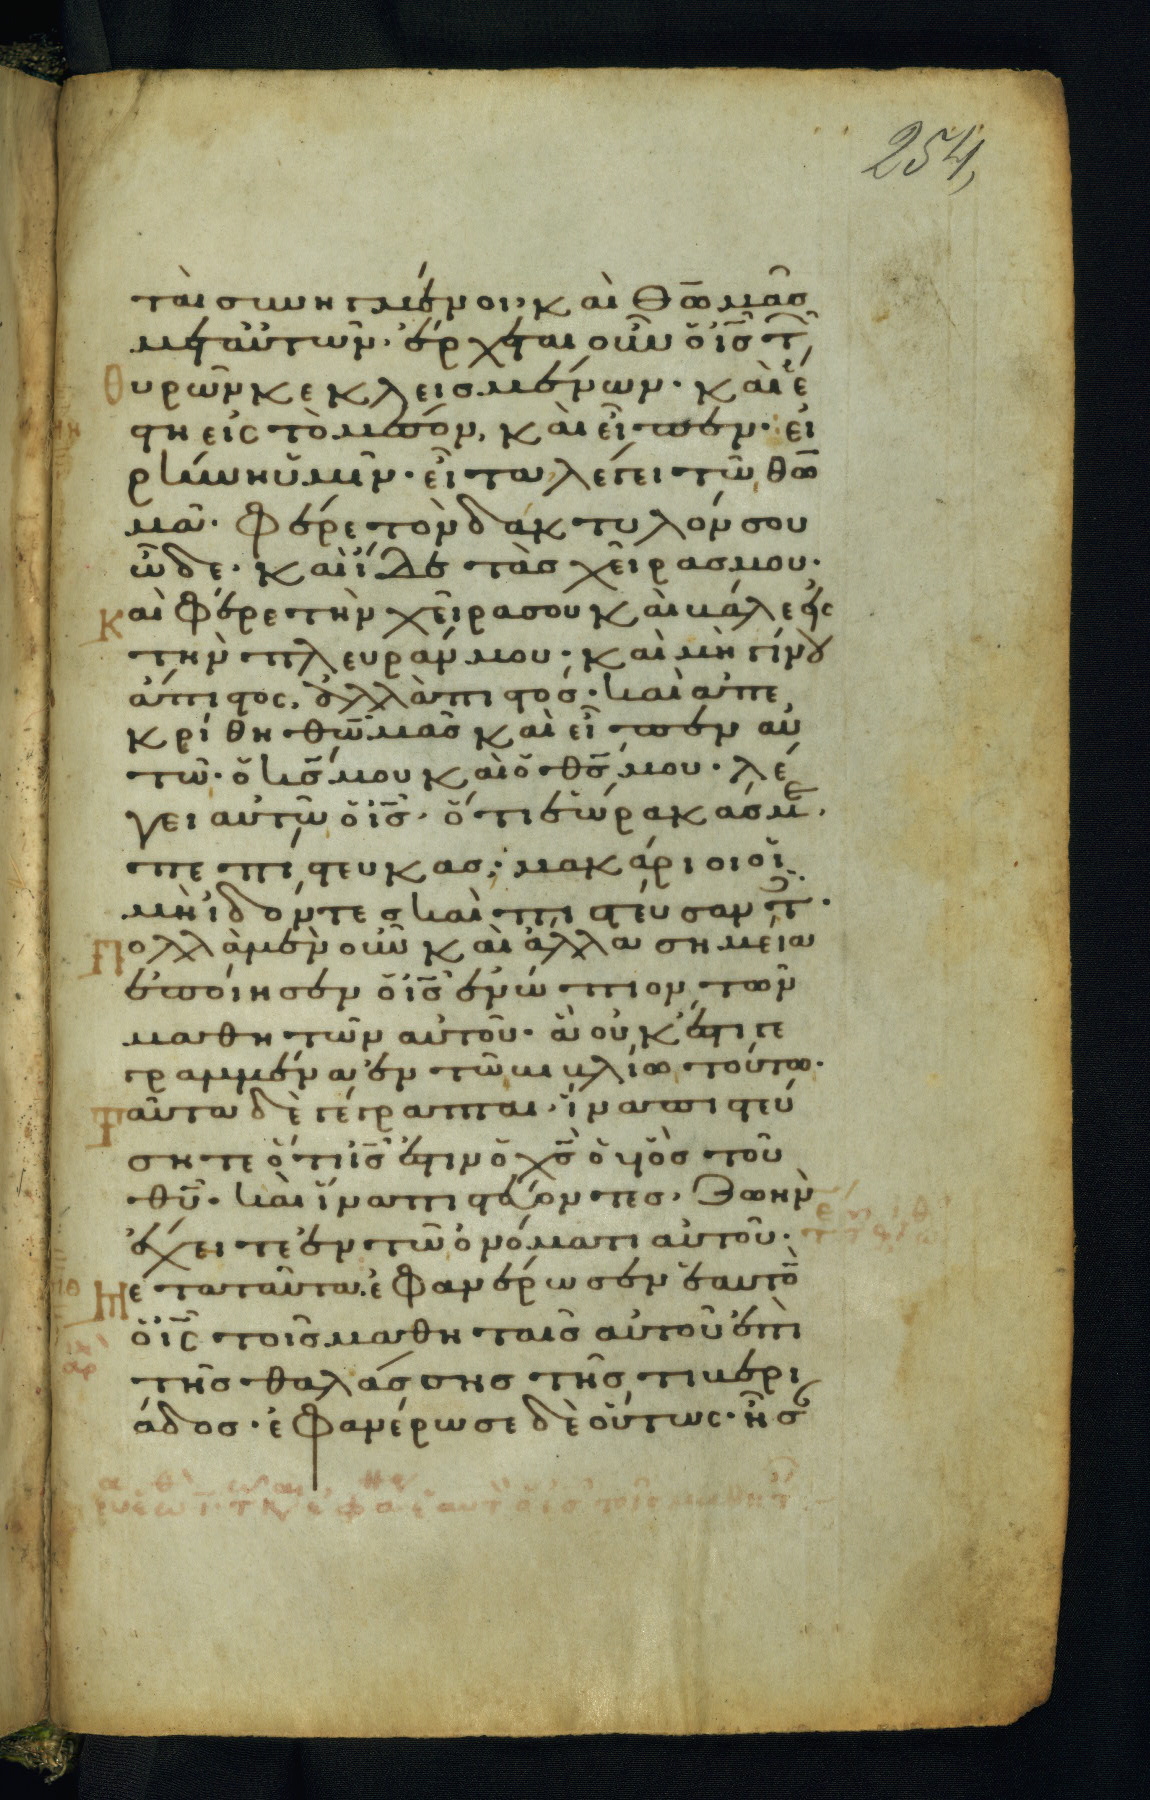 254,
ταὶ συνηγμένοι· καὶ Θωμᾶσ
μετ' αὐτῶν· ἔρχεται οὖν ὁ ἰσ̅ τ̅
θυρῶν κεκλεισμένων· καὶ ἔ
στη εἰς τὸ μέσον, καὶ εἶπεν· εἰ
ρήνη ὑμῖν· εἶτα λέγει τῶ θω
μᾶ· Φέρε τὸν δάκτυλόν σου
ὧδε· καὶ ἴδε τὰσ χεῖρασ μου·
Καὶ φέρε τὴν χεῖρα σου καὶ βάλε εἰς
τὴν πλευράν μου· καὶ μὴ γίνου
ἄπιστος, ἀλλὰ πιστόσ· καὶ ἀπε
κρίθη θωμᾶσ καὶ εἶπεν αὐ
τῶ· ὁ κσ̅ μου καὶ ὁ θσ̅ μου· λέ
γει αὐτῶ ὁ ἰσ̅· ὅτι ἑώρακάσ με·
πεπίστευκασ; μακάριοι οἱ
μὴ ἰδόντεσ καὶ πιστεύσαντ̅·
Πολλὰ μὲν οὖν καὶ ἄλλα σημεία
ἐποίησεν ὁ ἰσ̅ ἐνώπιον τῶν
μαθητῶν αὐτοῦ· ἃ οὐκ ἔστι γε
γραμμένα ἐν τῶ βιβλίω τούτω·
Ταῦτα δὲ γέγραπται· ἵνα πιστεύ
σητε ὅτι ἰσ̅ ἐστιν ὁ χσ̅ ὁ υἱὸσ τοῦ
θυ̅· καὶ ἵνα πιστεύοντεσ, ζωὴν
ἔχειτε ἐν τῶ ὀνόματι αὐτοῦ·
Μετα ταῦτα ἐφανέρωσεν ἑαυτὸ̅
ὁ ἰς̅ τοῖσ μαθηταῖσ αὐτοῦ ἐπὶ
τῆσ θαλάσσησ τῆσ τιβερι
άδοσ· ἐφανέρωσε δὲ οὕτως· ἦσ